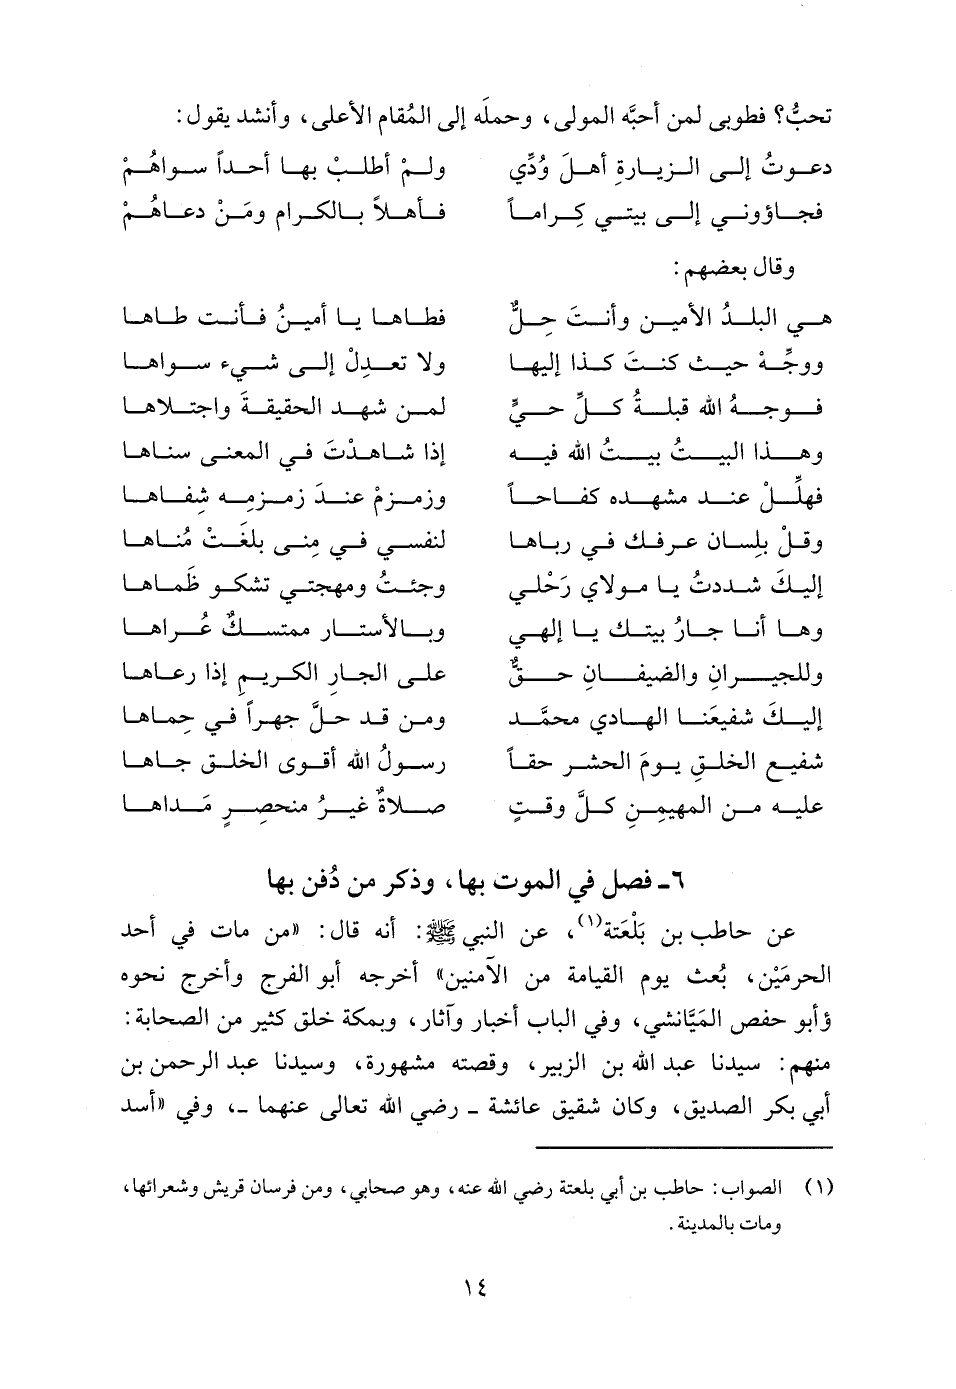 تحبُّ؟ فطوبى لمن أحبَّه المولى، وحملَه إلى المُقام الأعلى، وأنشد يقول:
دعوتُ إلى الزيارةِ أهلَ وُدِّي ولمْ أطلبْ بها أحداً سواهُمْ
فجاؤوني إلى بيتي كراماً فأهلاً بالكرام ومَنْ دعاهُمْ
وقال بعضهم:
هي البلدُ الأمين وأنتَ حِلٌّ فطاها يا أمينُ فأنت طاها
ووجِّهْ حيث كنتَ كذا إليها ولا تعدِلْ إلى شيء سواها
فوجهُ الله قبلةُ كلِّ حيٍّ لمن شهد الحقيقةَ واجتلاها
وهذا البيتُ بيتُ الله فيه إذا شاهدْتَ في المعنى سناها
فهلِّلْ عند مشهده كفاحاً وزمزمْ عندَ زمزمِه شفاها
وقلْ بلسان عرفك في رباها لنفسي في مِنى بلغَتْ مُناها
إليكَ شددتُ يا مولاي رَحْلي وجئتُ ومهجتي تشكو ظَماها
وها أنا جارُ بيتك يا إلهي وبالأستار ممتسكٌ عُراها
وللجيرانِ والضيفانِ حقٌّ على الجارِ الكريمِ إذا رعاها
إليكَ شفيعَنا الهادي محمَّد ومن قد حلَّ جهراً في حِماها
شفيع الخلقِ يومَ الحشرِ حقاً رسولُ الله أقوى الخلقِ جاها
عليه من المهيمنِ كلَّ وقتٍ صلاةٌ غيرُ منحصرٍ مَداها
٦ـ فصل في الموت بها، وذكر من دُفن بها
عن حاطب بن بَلْتَعَة(١)، عن النبي ﷺ: أنه قال: «من مات في أحد
الحرمَيْن، بُعث يوم القيامة من الآمنين» أخرجه أبو الفرج وأخرج نحوه
وأبو حفص المَيَّانشي، وفي الباب أخبار وآثار، وبمكة خلق كثير من الصحابة:
منهم: سيدنا عبد الله بن الزبير، وقصته مشهورة، وسيدنا عبد الرحمن بن
أبي بكر الصديق، وكان شقيق عائشة ـ رضي الله تعالى عنهما ـ، وفي «أسد
(١) الصواب: حاطب بن أبي بلعتة رضي الله عنه، وهو صحابي، ومن فرسان قريش وشعرائها،
ومات بالمدينة.
١٤